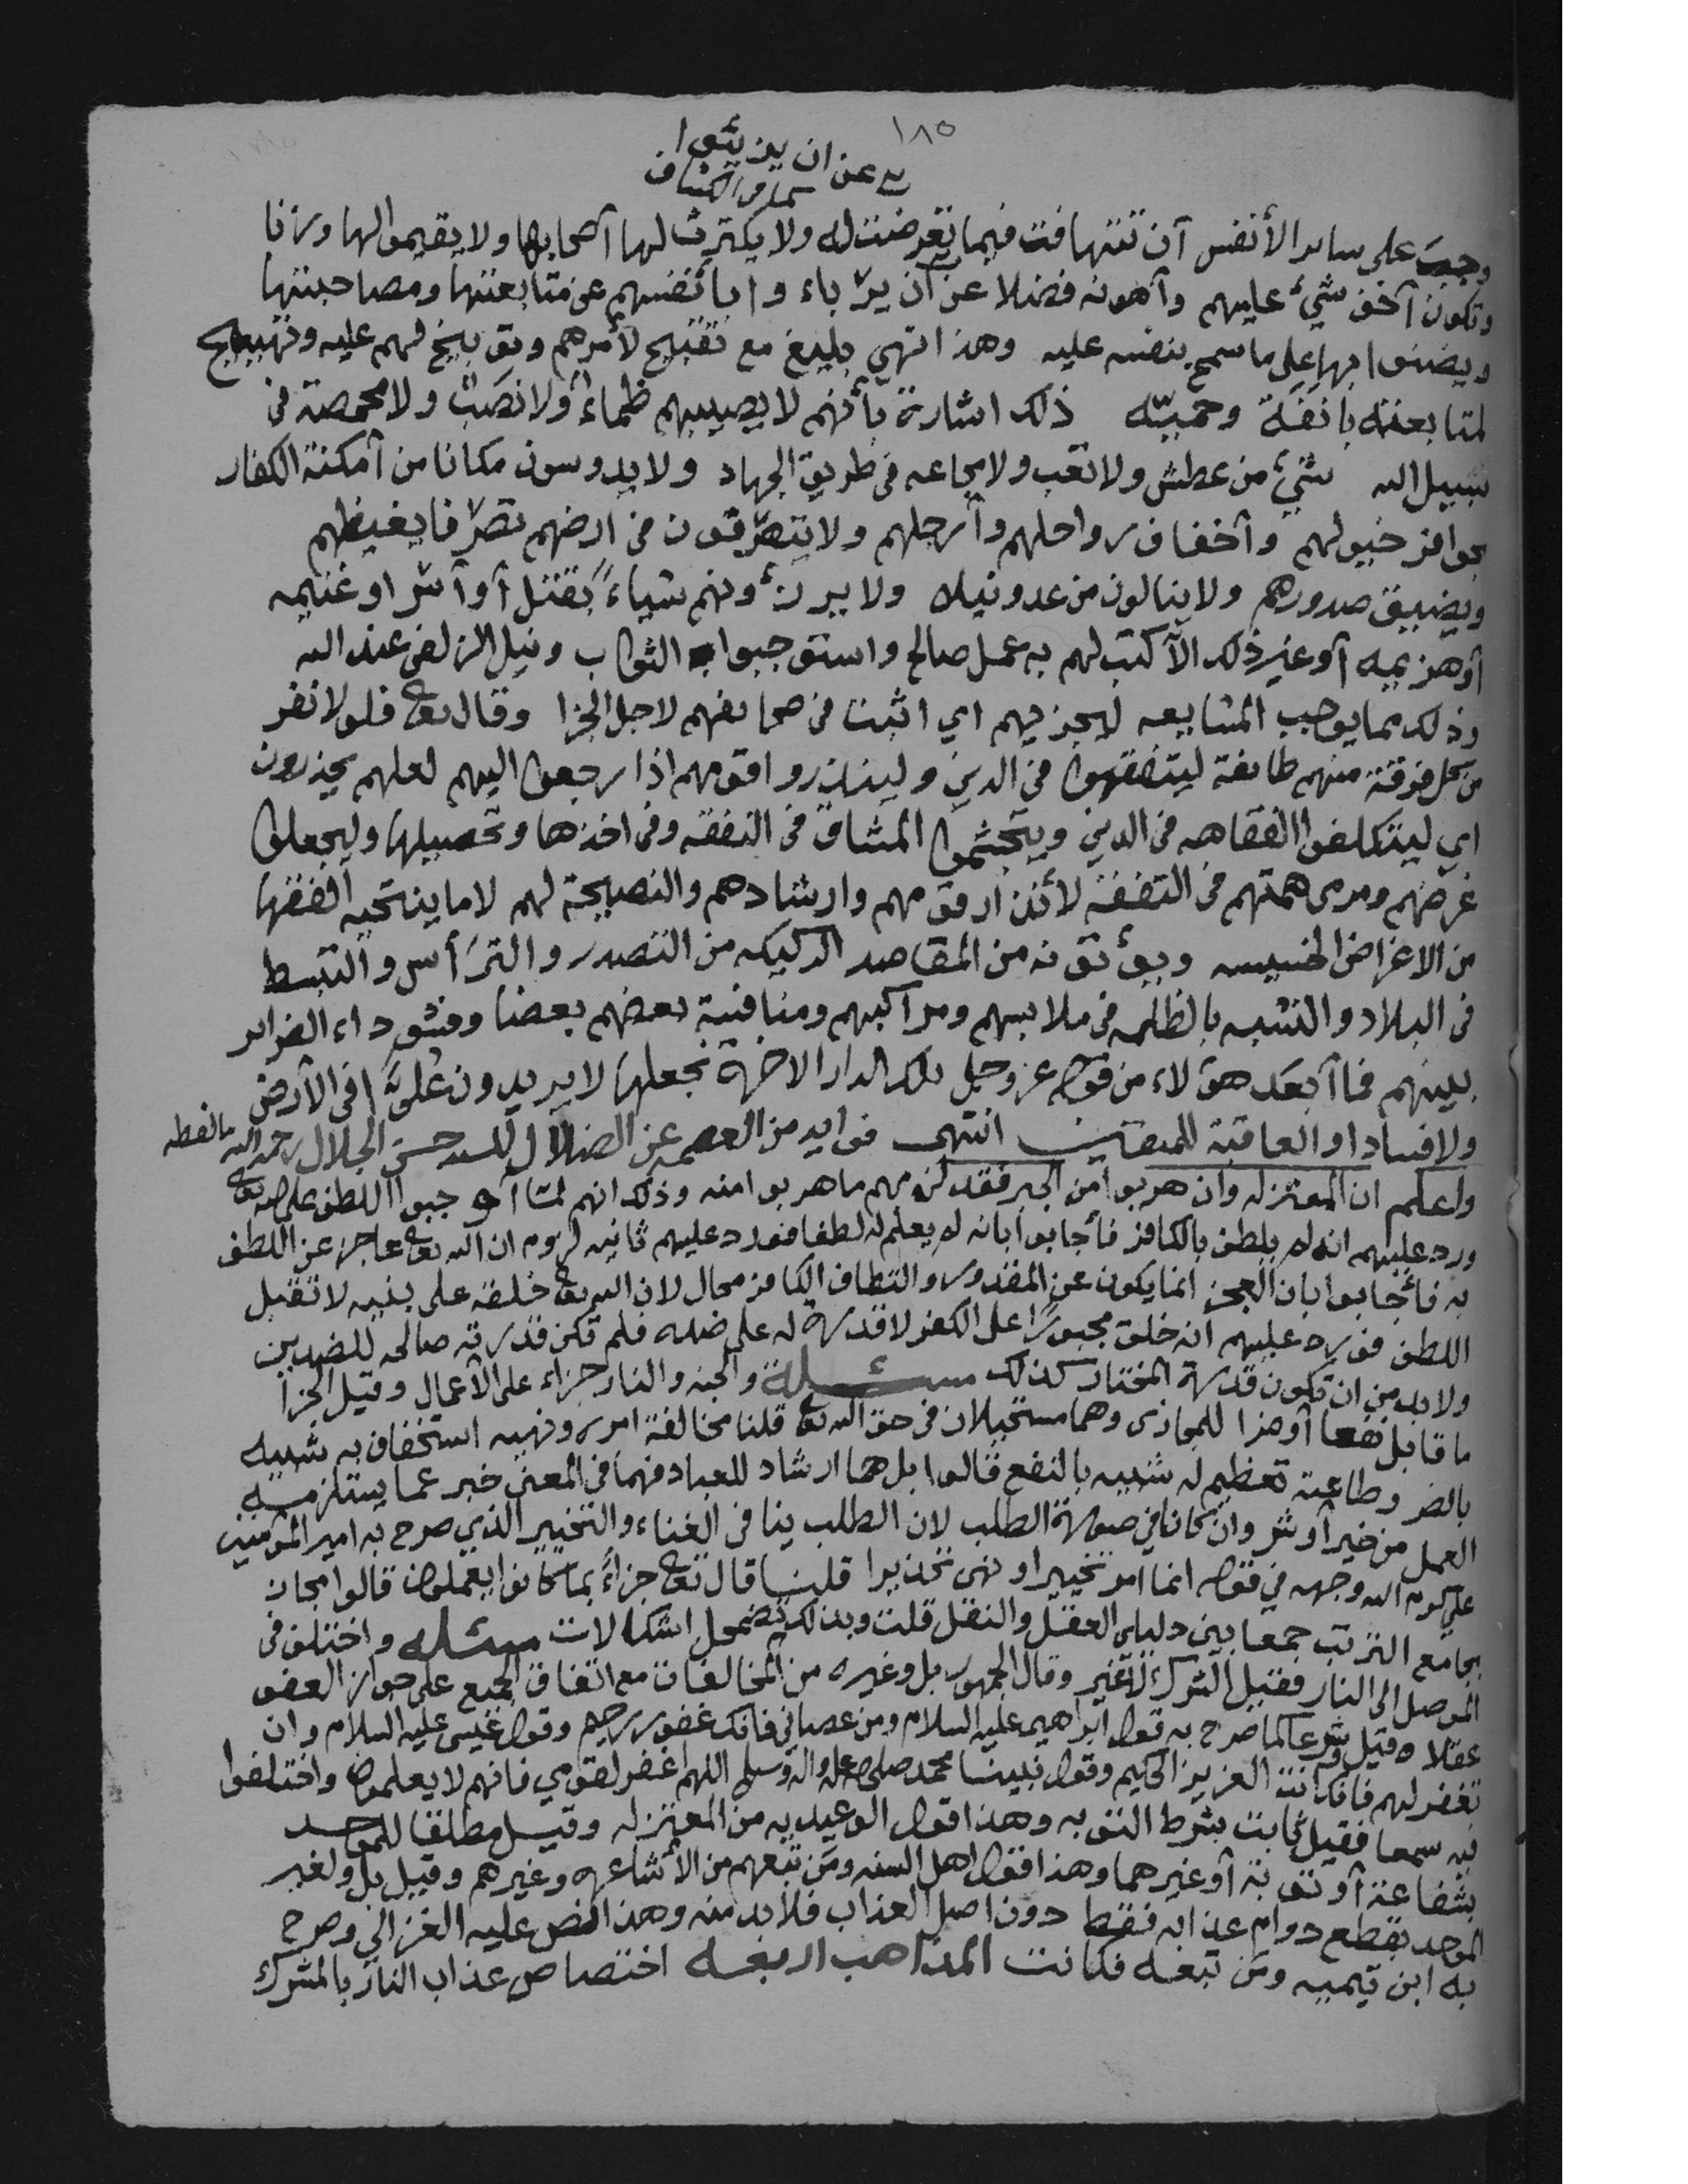 ١٨٥
عن ان يربئوا
كما في الكشاف
وجب على ساير الأنفس أن تتهافت فيما تعرضت له ولا يكترث لها أصحابها ولا يقيموا لها وزنا
وتكون أخف شيء عليهم وأهونه فضلا عن أن يربأ وا بأنفسهم عن متابعتها ومصاحبتها
ويضنوا بها على ما سمح بنفسه عليه وهذا نهي بليغ مع تقبيح لأمرهم وتوبيخ لهم عليه وتهييج
لمتابعته بأنفة وحميّه ذلك اشارة بأنهم لا يصيبهم ظماء ولا نصب ولا مخمصة في
سبيل الله شيء من عطش ولا تعب ولا مجاعه في طريق الجهاد ولا يدوسون مكانا من أمكنة الكفار
بحوافر خيولهم وأخفاف رواحلهم وأرجلهم ولا يتصرّفون في ارضهم تصرّفا يغيظهم
ويضيق صدورهم ولا ينالون من عدو نيلا ولا يرزؤونهم شياءً بقتل أو أسر او غنيمه
أو هزيمه أو غير ذلك الآ كتب لهم به عمل صالح واستوجبوا الثواب ونيل الزلفى عند الله
وذلك مما يوجب المشايعه ليجزيهم اي اثبت في صحايفهم لاجل الجزا وقال تعالى فلولا نفر
من كل فرقة منهم طايفة ليتفقهوا في الدين ولينذروا قومهم اذا رجعوا اليهم لعلهم يحذرون
اي ليتكلفوا الفقاهه في الدين ويتجشموا المشاق في التفقه وفي اخذها وتحصيلها وليجعلوا
غرضهم ومرمى همتهم في التفقه لأنذار قومهم وارشادهم والنصيحة لهم لا ما ينتحيه الفقها
من الاغراض الخسيسه ويؤتونه من المقاصد الركيكه من التصدر والترأس والتبسط
في البلاد والتشبه بالظلمه في ملابسهم ومراكبهم ومنافسة بعضهم بعضا وفشو داء الضراير
بينهم فما أبعد هؤلاء من قوله عز وجل تلك الدار الاخرة نجعلها لا يريدون علوًّا في الأرض
ولا فسادا والعاقبة للمتقين انتهى فوايد من العصمه عن الضلال للسيد حسن الجلال رحمه الله ما لفظه
واعلم ان المعتزله وان هربوا من الجبر فقد لزمهم ما هربوا منه وذلك انهم لمّا أوجبوا اللطف على الله تعالى
ورد عليهم انه لم يلطف بالكافر فأجابوا بانه لم يعلم له لطفا فورد عليهم ثانيه لزوم ان الله تعالى عاجز عن اللطف
به فأجابوا بان العجز انما يكون عن المقدور والتطاف الكافر محال لان الله تعالى خلقه على بنيه لا تقبل
اللطف فورد عليهم انه خلق مجبورًا على الكفر لا قدرة له على ضده فلم تكن قدرته صالحه للضدين
ولا بد من ان تكون قدرة المختار كذلك مسئلة والجنه والنار جزاء على الأعمال وقيل الجزا
ما قابل نفعا أو ضرا للمجازى وهما مستحيلان في حق الله تعالى قلنا مخالفة امره ونهيه استخفاف به شبيه
بالضر وطاعته تعظيم له شبيه بالنفع قالوا بل هما ارشاد للعباد فهما في المعنى خبر عما يستلزمه
العمل من خير أو شر وان كانا في صورة الطلب لان الطلب ينافي الغناء والتخيير الذي صرح به امير المؤمنين
علي كرم الله وجهه في قوله انما امر تخييرا ونهى تحذيرا قلنا قال تعالى جزاءً بما كانوا يعملون قالوا مجاز
بجامع الترتب جمعا بين دليلي العقل والنقل قلت وبذلك تضمحل اشكالات مسئله واختلف في
الموصل الى النار فقيل الشرك لا غير وقال الجمهور بل وغيره من المخالفات مع اتفاق الجميع على جواز العفو
عقلا وقيل وشرعا كما صرح به قول ابراهيم عليه السلام ومن عصاني فانك غفور رحيم وقول عيسى عليه السلام وان
تغفر لهم فانك انت العزيز الحكيم وقول نبينا محمد صلى الله عليه واله وسلم اللهم اغفر لقومي فانهم لا يعلمون واختلفوا
فيه سمعا فقيل ثابت بشرط التوبه وهذا قول الوعيديه من المعتزله وقيل مطلقا للموحد
بشفاعة أو توبة أو غيرهما وهذا قول اهل السنه ومن تبعهم من الأشاعره وغيرهم وقيل بل ولغير
الموحد بقطع دوام عذابه فقط دون اصل العذاب فلا بد منه وهذا نص عليه الغزالي وصرح
به ابن تيميه ومن تبعه فكانت المذاهب اربعه اختصاص عذاب النار بالمشرك